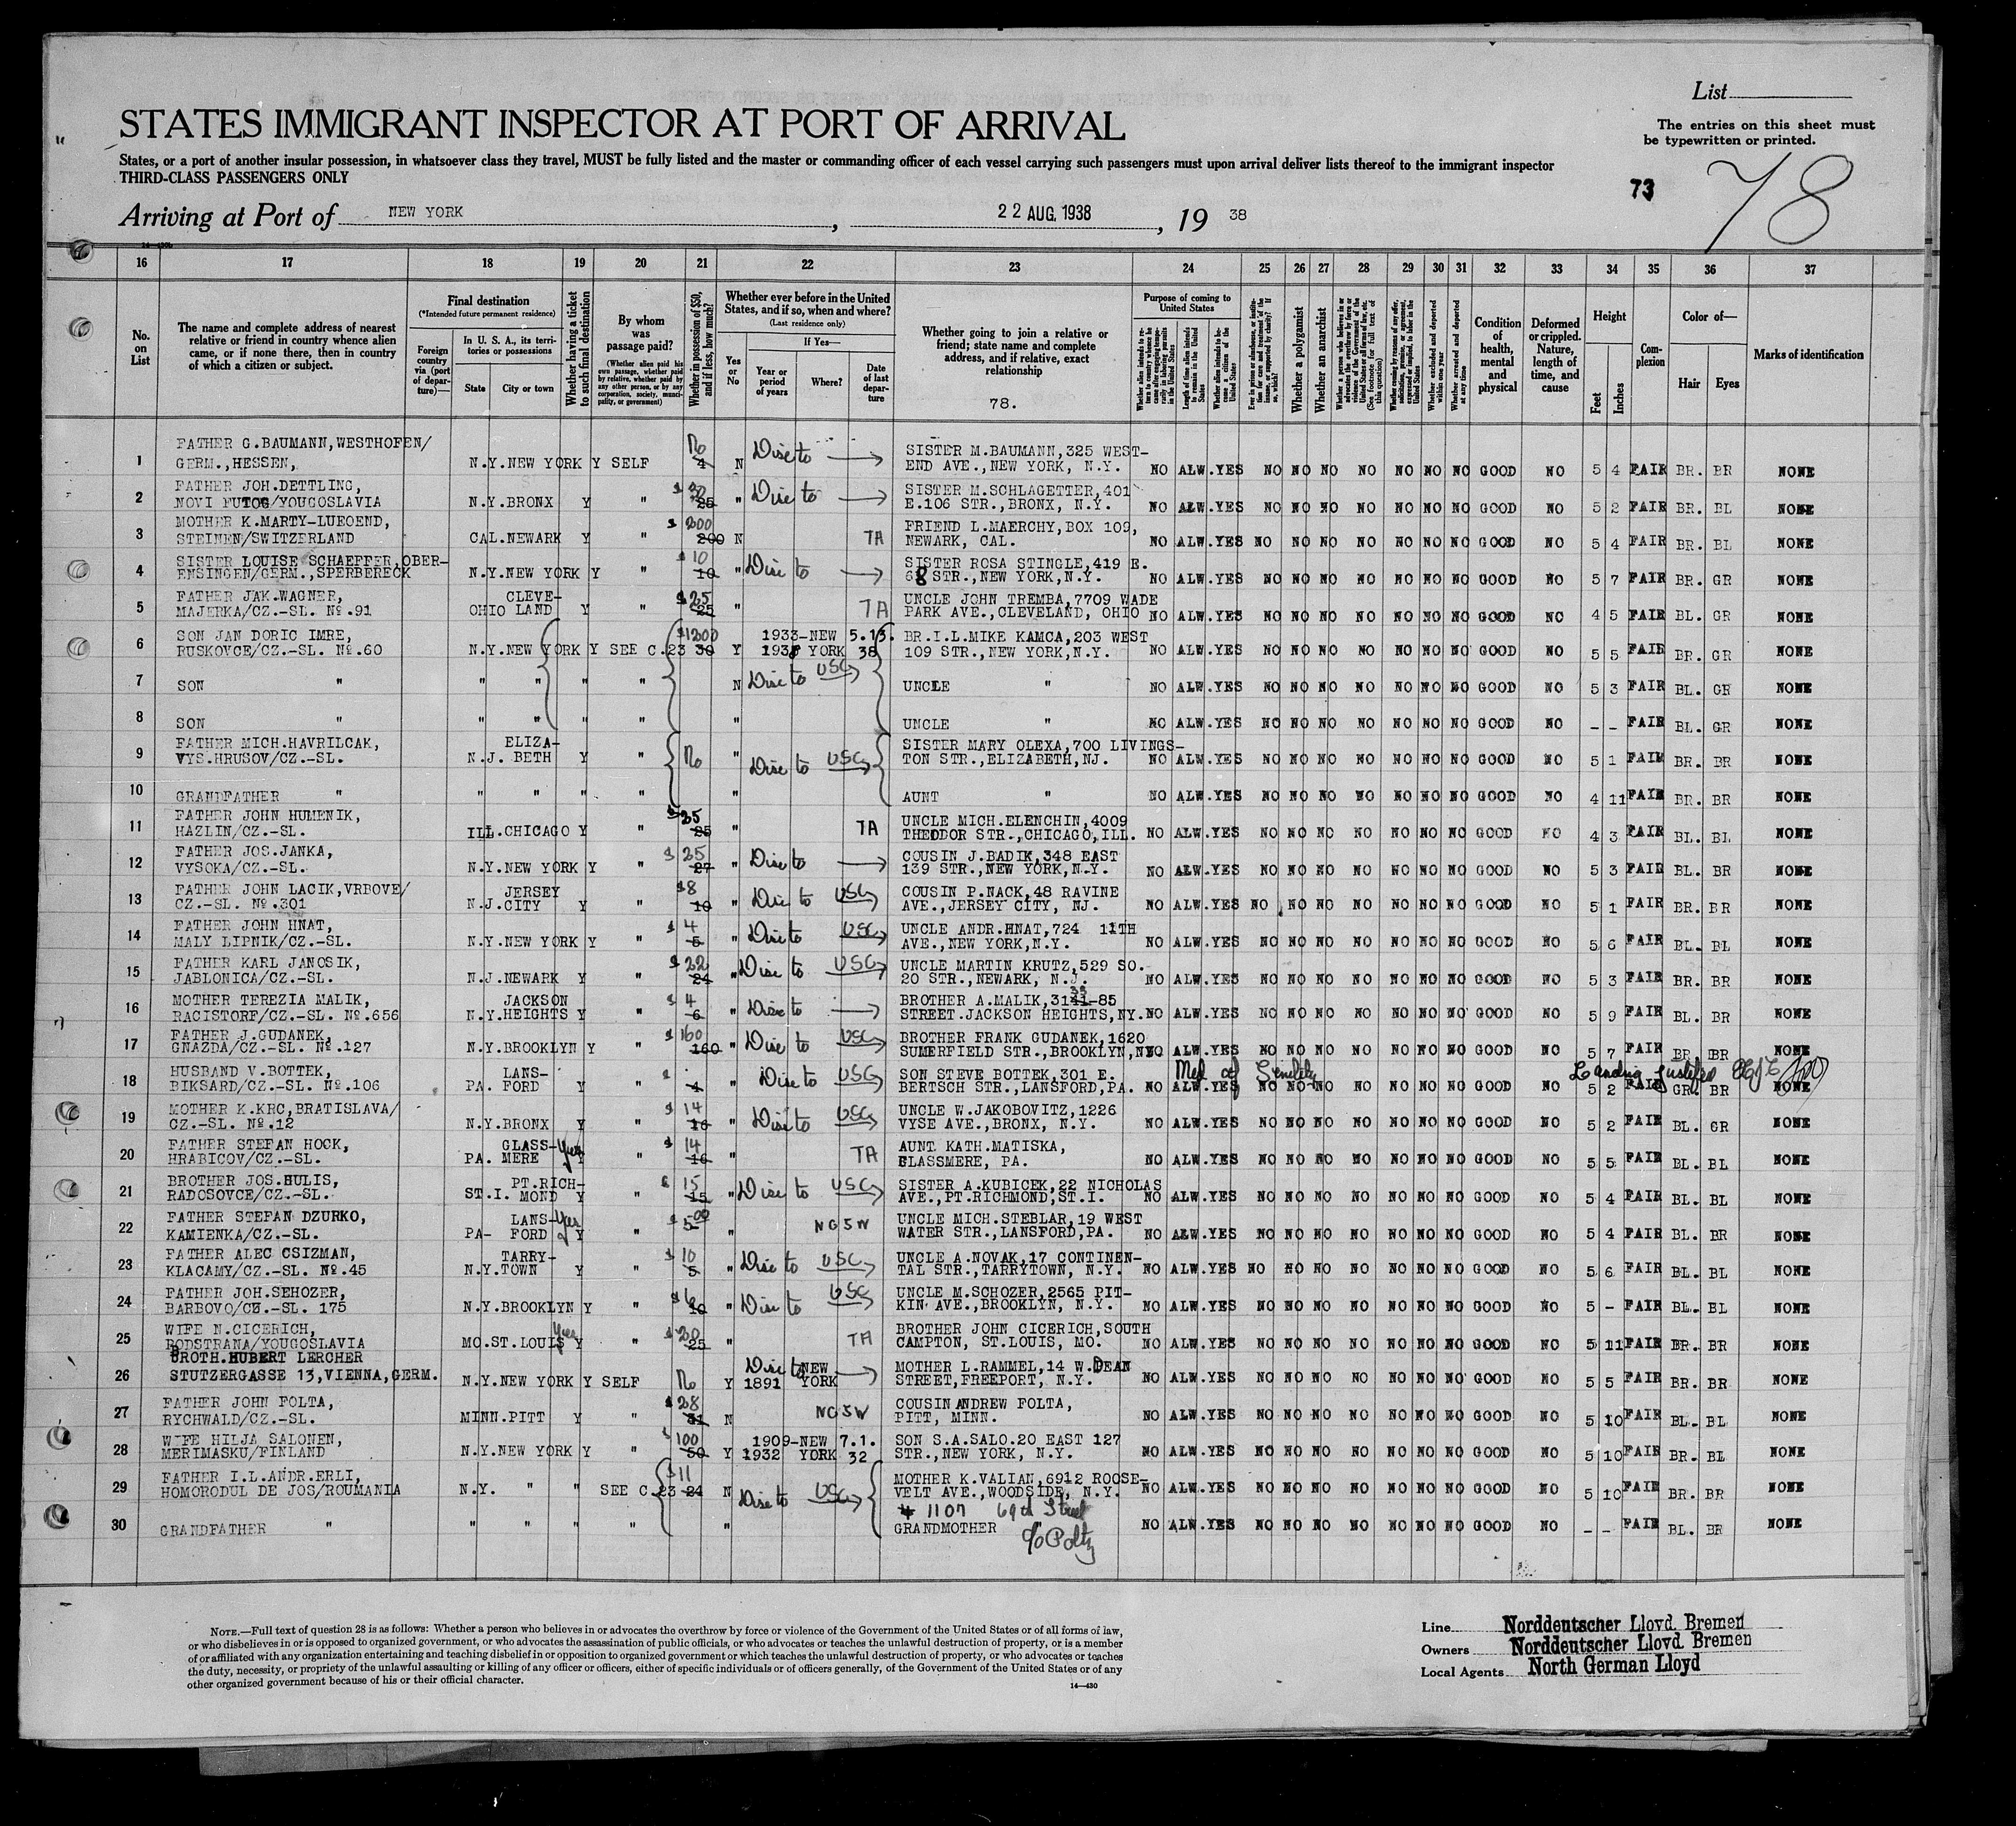 List
STATES IMMIGRANT INSPECTOR AT PORT OF ARRIVAL
The entries on this sheet must
be typewritten or printed.
States, or a port of another insular possession, in whatsoever class they travel, MUST be fully listed and the master or commanding officer of each vessel carrying such passengers must upon arrival deliver lists thereof to the immigrant inspector
THIRD-CLASS PASSENGERS ONLY
73 78
Arriving at Port of NEW YORK, 22 AUG. 1938, 19 38
16 17 18 19 20 21 22 23 24 25 26 27 28 29 30 31 32 33 34 35 36 37
No. on List
The name and complete address of nearest relative or friend in country whence alien came, or if none there, then in country of which a citizen or subject.
Final destination
(*Intended future permanent residence)
Foreign country via (port of departure)—
In U. S. A., its territories or possessions
State City or town
Whether having a ticket to such final destination
By whom was passage paid?
(Whether alien paid his own passage, whether paid by relative, whether paid by any other person, or by any corporation, society, municipality, or government)
Whether in possession of $50, and if less, how much?
Whether ever before in the United States, and if so, when and where?
(Last residence only)
Yes or No
If Yes—
Year or period of years Where? Date of last departure
Whether going to join a relative or friend; state name and complete address, and if relative, exact relationship
78.
Purpose of coming to United States
Whether a polygamist
Whether an anarchist
Condition of health, mental and physical
Deformed or crippled. Nature, length of time, and cause
Height
Feet Inches
Complexion
Color of—
Hair Eyes
Marks of identification
1 FATHER G.BAUMANN,WESTHOFEN/ No SISTER M.BAUMANN,325 WEST-
GERM.,HESSEN, N.Y.NEW YORK Y SELF 4 N Disc to END AVE.,NEW YORK, N.Y. NO ALW.YES NO NO NO NO NO NO NO GOOD NO 5 4 FAIR BR. BR NONE
2 FATHER JOH.DETTLING, SISTER M.SCHLAGETTER,401
NOVI FUTOG/YOUGOSLAVIA N.Y.BRONX Y " 25 " Disc to E.106 STR.,BRONX, N.Y. NO ALW.YES NO NO NO NO NO NO NO GOOD NO 5 2 FAIR BR. BL NONE
3 MOTHER K.MARTY-LUEOEND, $ 200 FRIEND L.MAERCHY,BOX 109,
STEINEN/SWITZERLAND CAL.NEWARK Y " 200 N TA NEWARK, CAL. NO ALW.YES NO NO NO NO NO NO NO GOOD NO 5 4 FAIR BR. BL NONE
4 SISTER LOUISE SCHAEFFER,OBER- $ 10 SISTER ROSA STINGLE,419 E.
ENSINGEN/GERM.,SPERBERECK N.Y.NEW YORK Y " 10 " Disc to 68 STR.,NEW YORK,N.Y. NO ALW.YES NO NO NO NO NO NO NO GOOD NO 5 7 FAIR BR. GR NONE
5 FATHER JAK.WAGNER, CLEVE- $ 25 UNCLE JOHN TREMBA,7709 WADE
MAJERKA/CZ.-SL. No.91 OHIO LAND Y " 25 " TA PARK AVE.,CLEVELAND, OHIO NO ALW.YES NO NO NO NO NO NO NO GOOD NO 4 5 FAIR BL. GR NONE
6 SON JAN DORIC IMRE, $1200 1933-NEW 5.15. BR.I.L.MIKE KAMCA,203 WEST
RUSKOVCE/CZ.-SL. No.60 N.Y.NEW YORK Y SEE C.23 30 Y 1938 YORK 38 109 STR.,NEW YORK,N.Y. NO ALW.YES NO NO NO NO NO NO NO GOOD NO 5 5 FAIR BR. GR NONE
7 SON " " " " " N Disc to USC UNCLE " NO ALW.YES NO NO NO NO NO NO NO GOOD NO 5 3 FAIR BL. GR NONE
8 SON " " " " " " UNCLE " NO ALW.YES NO NO NO NO NO NO NO GOOD NO - - FAIR BL. GR NONE
9 FATHER MICH.HAVRILCAK, ELIZA- SISTER MARY OLEXA,700 LIVINGS-
VYS.HRUSOV/CZ.-SL. N.J. BETH Y " No " Disc to USC TON STR.,ELIZABETH,NJ. NO ALW.YES NO NO NO NO NO NO NO GOOD NO 5 1 FAIR BR. BR NONE
10 GRANDFATHER " " " " " " AUNT " NO ALW.YES NO NO NO NO NO NO NO GOOD NO 4 11 FAIR BR. BR NONE
11 FATHER JOHN HUMENIK, $25 UNCLE MICH.ELENCHIN,4009
HAZLIN/CZ.-SL. ILL.CHICAGO Y " 25 " TA THEODOR STR.,CHICAGO,ILL. NO ALW.YES NO NO NO NO NO NO NO GOOD NO 4 3 FAIR BL. BL NONE
12 FATHER JOS.JANKA, $ 25 COUSIN J.BADIK,348 EAST
VYSOKA/CZ.-SL. N.Y.NEW YORK Y " 27 " Disc to 139 STR.,NEW YORK,N.Y. NO ALW.YES NO NO NO NO NO NO NO GOOD NO 5 3 FAIR BL. BR NONE
13 FATHER JOHN LACIK,VRBOVE/ JERSEY $8 COUSIN P.NACK,48 RAVINE
CZ.-SL. No.301 N.J.CITY Y " 10 " Disc to USC AVE.,JERSEY CITY, NJ. NO ALW.YES NO NO NO NO NO NO NO GOOD NO 5 1 FAIR BR. BR NONE
14 FATHER JOHN HNAT, $ 4 UNCLE ANDR.HNAT,724 11TH
MALY LIPNIK/CZ.-SL. N.Y.NEW YORK Y " 5 " Disc to USC AVE.,NEW YORK,N.Y. NO ALW.YES NO NO NO NO NO NO NO GOOD NO 5 6 FAIR BL. BL NONE
15 FATHER KARL JANOSIK, $ 22 UNCLE MARTIN KRUTZ,529 SO.
JABLONICA/CZ.-SL. N.J.NEWARK Y " 24 " Disc to USC 20 STR.,NEWARK, N.J. NO ALW.YES NO NO NO NO NO NO NO GOOD NO 5 3 FAIR BR. BR NONE
16 MOTHER TEREZIA MALIK, JACKSON $ 4 BROTHER A.MALIK,3141-85
RACISTORF/CZ.-SL. No.656 N.Y.HEIGHTS Y " 6 " Disc to STREET.JACKSON HEIGHTS,NY. NO ALW.YES NO NO NO NO NO NO NO GOOD NO 5 9 FAIR BL. BR NONE
17 FATHER J.GUDANEK, $ 160 BROTHER FRANK GUDANEK,1620
GNAZDA/CZ.-SL. No.127 N.Y.BROOKLYN Y " 160 " Disc to USC SUMERFIELD STR.,BROOKLYN,NY NO ALW.YES NO NO NO NO NO NO NO GOOD NO 5 7 FAIR BR BR NONE
18 HUSBAND V.BOTTEK, LANS- $ SON STEVE BOTTEK,301 E. Med cf Senility Landing Justified
BIKSARD/CZ.-SL. No.106 PA. FORD Y " 4 " Disc to USC BERTSCH STR.,LANSFORD,PA. NO ALW.YES NO NO NO NO NO NO NO GOOD NO 5 2 FAIR GR. BR NONE
19 MOTHER K.KRC,BRATISLAVA/ $ 14 UNCLE W.JAKOBOVITZ,1226
CZ.-SL. No.12 N.Y.BRONX Y " 16 " Disc to USC VYSE AVE.,BRONX, N.Y. NO ALW.YES NO NO NO NO NO NO NO GOOD NO 5 2 FAIR BL. GR NONE
20 FATHER STEFAN HOCK, GLASS- Yes $ 14 AUNT KATH.MATISKA,
HRABICOV/CZ.-SL. PA. MERE Y " 16 " TA GLASSMERE, PA. NO ALW.YES NO NO NO NO NO NO NO GOOD NO 5 5 FAIR BL. BL NONE
21 BROTHER JOS.HULIS, PT.RICH- $ 15 SISTER A.KUBICEK,22 NICHOLAS
RADCSOVCE/CZ.-SL. ST.I. MOND Y " 15 " Disc to USC AVE.,PT.RICHMOND,ST.I. NO ALW.YES NO NO NO NO NO NO NO GOOD NO 5 4 FAIR BL. BL NONE
22 FATHER STEFAN DZURKO, LANS- Yes $ 5.00 UNCLE MICH.STEBLAR,19 WEST
KAMIENKA/CZ.-SL. PA- FORD Y " " NGSW WATER STR.,LANSFORD,PA. NO ALW.YES NO NO NO NO NO NO NO GOOD NO 5 4 FAIR BL. BR NONE
23 FATHER ALEC CSIZMAN, TARRY- $ 10 UNCLE A.NOVAK,17 CONTINEN-
KLACAMY/CZ.-SL. No.45 N.Y.TOWN Y " 5 " Disc to USC TAL STR.,TARRYTOWN, N.Y. NO ALW.YES NO NO NO NO NO NO NO GOOD NO 5 6 FAIR BL. BL NONE
24 FATHER JOH.SEHOZER, $ 6 UNCLE M.SCHOZER,2565 PIT-
BARBOVO/CZ-SL. 175 N.Y.BROOKLYN Y " 10 " Disc to USC KIN AVE.,BROOKLYN, N.Y. NO ALW.YES NO NO NO NO NO NO NO GOOD NO 5 - FAIR BL. BL NONE
25 WIFE N.CICERICH, Yes $ 20 BROTHER JOHN CICERICH,SOUTH
PODSTRANA/YOUGOSLAVIA MO.ST.LOUIS Y " 25 " TA CAMPTON, ST.LOUIS, MO. NO ALW.YES NO NO NO NO NO NO NO GOOD NO 5 11 FAIR BR. BR NONE
26 BROTH.HUBERT LERCHER Disc to NEW MOTHER L.RAMMEL,14 W.DEAN
STUTZERGASSE 13,VIENNA,GERM. N.Y.NEW YORK Y SELF No Y 1891 YORK STREET,FREEPORT, N.Y. NO ALW.YES NO NO NO NO NO NO NO GOOD NO 5 5 FAIR BR. BR NONE
27 FATHER JOHN FOLTA, $ 28 COUSIN ANDREW FOLTA,
RYCHWALD/CZ.-SL. MINN.PITT Y " 31 N NGSW PITT, MINN. NO ALW.YES NO NO NO NO NO NO NO GOOD NO 5 10 FAIR BL. BL NONE
28 WIFE HILJA SALONEN, $ 100 1909-NEW 7.1. SON S.A.SALO.20 EAST 127
MERIMASKU/FINLAND N.Y.NEW YORK Y " 50 Y 1932 YORK 32 STR.,NEW YORK, N.Y. NO ALW.YES NO NO NO NO NO NO NO GOOD NO 5 10 FAIR BR. BL NONE
29 FATHER I.L.ANDR.ERLI, $11 MOTHER K.VALIAN,6912 ROOSE-
HOMORODUL DE JOS/ROUMANIA N.Y. " " SEE C.23 24 N Disc to USC VELT AVE.,WOODSIDE, N.Y. NO ALW.YES NO NO NO NO NO NO NO GOOD NO 5 10 FAIR BR. BR NONE
1107 69th Street
30 GRANDFATHER " " " " " " GRANDMOTHER " NO ALW.YES NO NO NO NO NO NO NO GOOD NO - - FAIR BL. BR NONE
c/o Poltz
NOTE.—Full text of question 28 is as follows: Whether a person who believes in or advocates the overthrow by force or violence of the Government of the United States or of all forms of law,
or who disbelieves in or is opposed to organized government, or who advocates the assassination of public officials, or who advocates or teaches the unlawful destruction of property, or is a member
of or affiliated with any organization entertaining and teaching disbelief in or opposition to organized government or which teaches the unlawful destruction of property, or who advocates or teaches
the duty, necessity, or propriety of the unlawful assaulting or killing of any officer or officers, either of specific individuals or of officers generally, of the Government of the United States or of any
other organized government because of his or their official character.
14—430
Line Norddeutscher Lloyd. Bremen
Owners Norddeutscher Lloyd Bremen
Local Agents North German Lloyd